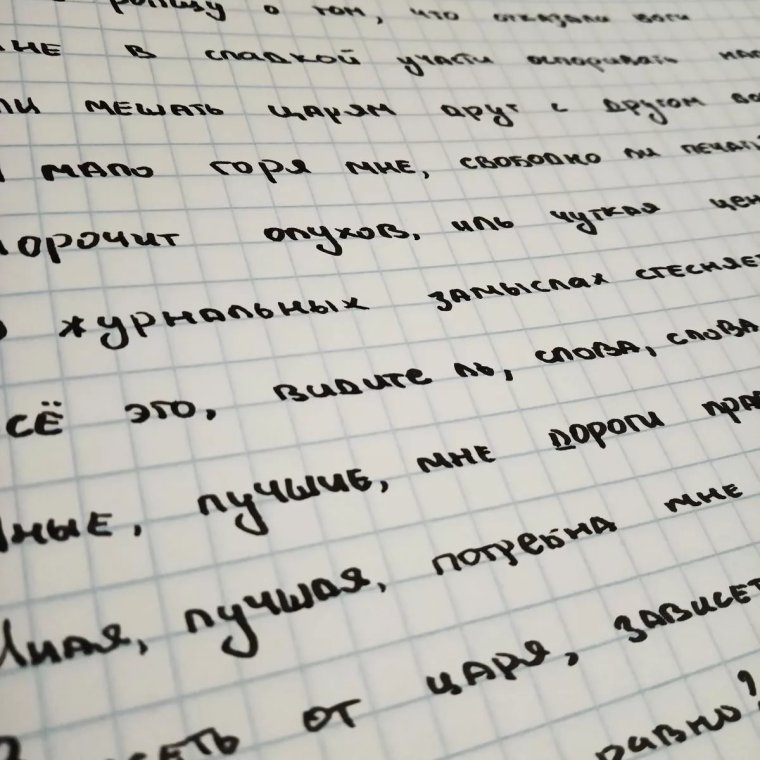 ропщу о том, что отказали боги
мне в сладкой участи оспоривать нал
ли мешать царям друг с другом во
мало горя мне, свободно ли печать
морочит олухов, иль чуткая цен
журнальных замыслах стесняет
сё это, видите ль, слова, слова
ные, лучшие, мне дороги пра
Иная, лучшая, потребна мне
от царя, зависет
равно?